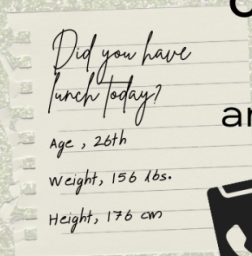 Did you have
lunch today?
Age , 26th
Weight, 156 lbs.
Height, 176 cm